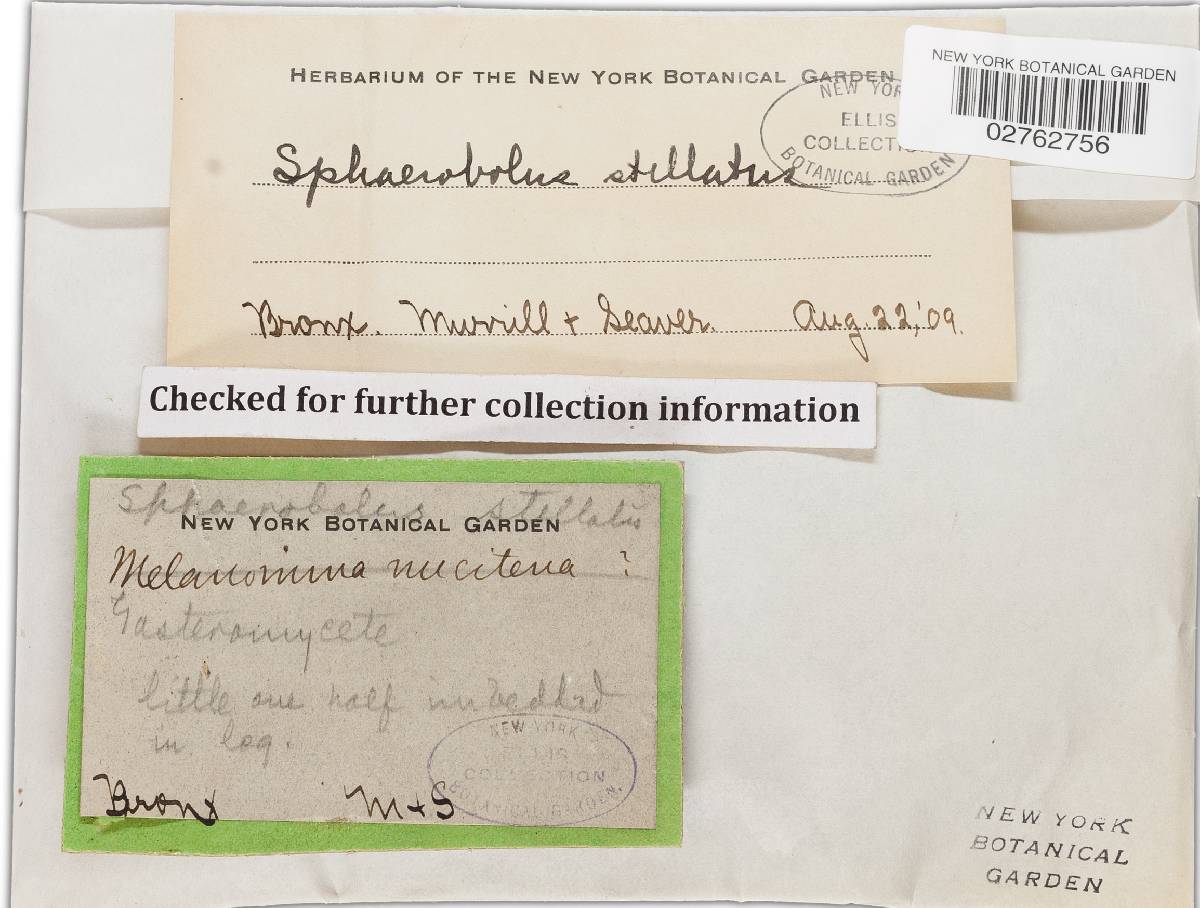 HERBARIUM OF THE NEW YORK BOTANICAL GARDEN
NEW YORK BOTANICAL GARDEN
02762756
NEW YOR
ELLIS
COLLECTIO
BOTANICAL GARDEN
Sphaerobolus stellatus
Bronx. Murrill + Seaver. Aug 22, '09.
Checked for further collection information
Sphaerobolus stellatus
NEW YORK BOTANICAL GARDEN
Melanomma ?
Gasteromycete
little one half imbedded
in log.
NEW YORK
ELLIS
COLLECTION
BOTANICAL GARDEN.
Bronx M + S
NEW YORK
BOTANICAL
GARDEN